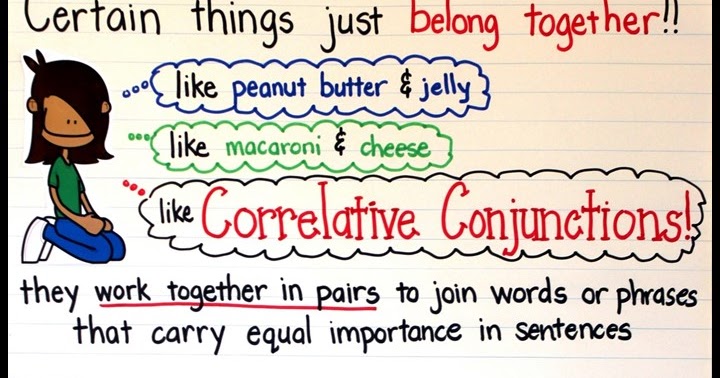 Certain things just belong together!!
like peanut butter & jelly
like macaroni & cheese
like Correlative Conjunctions!
they work together in pairs to join words or phrases
that carry equal importance in sentences